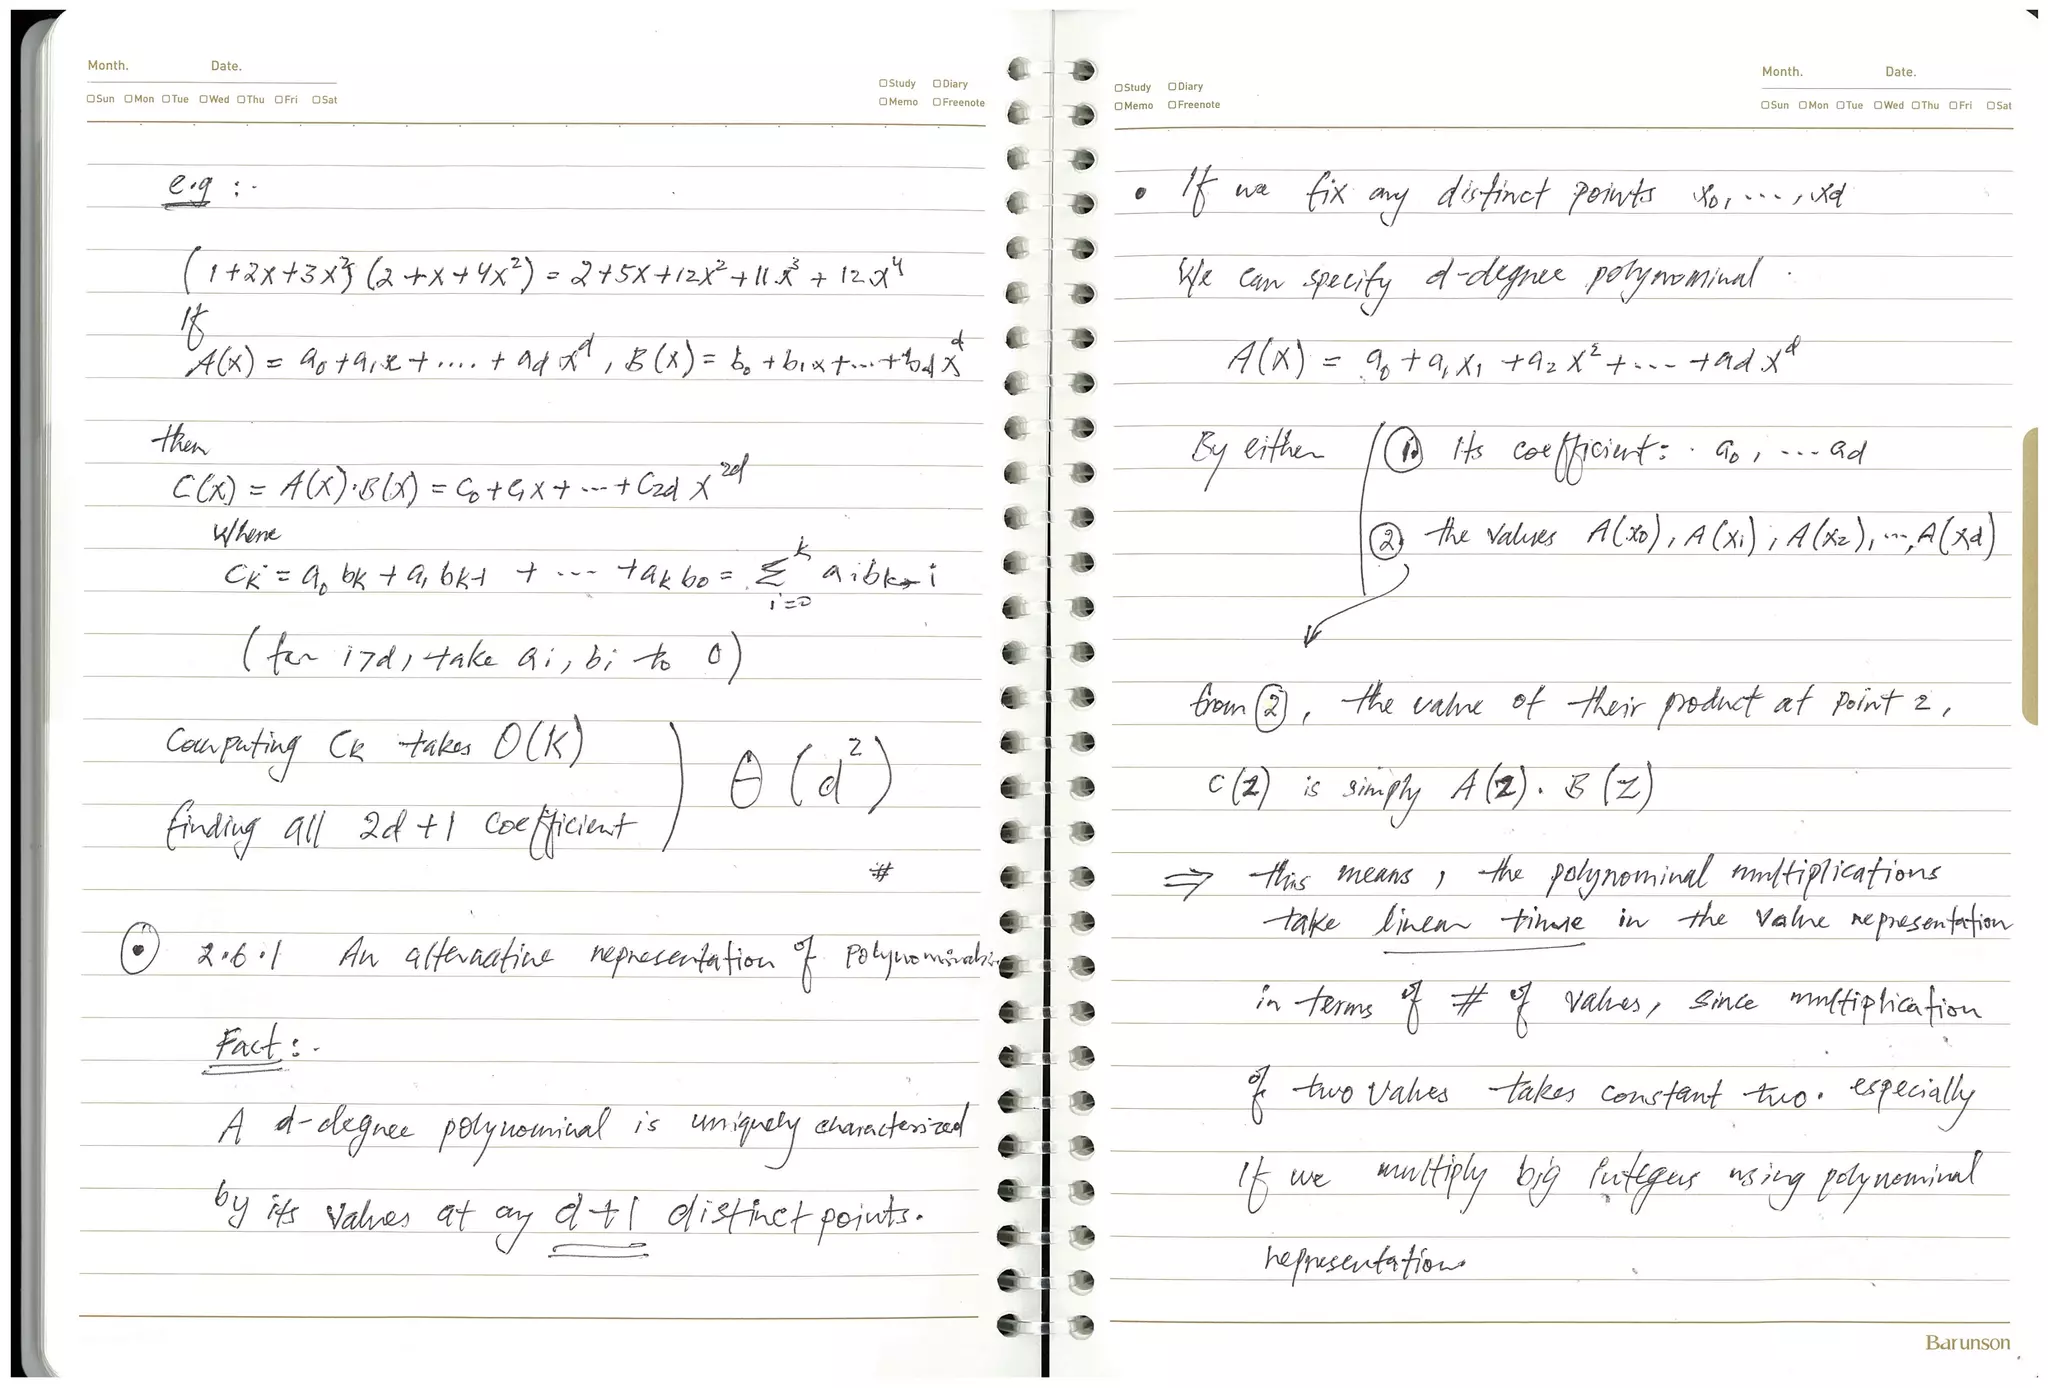 Month. Date.
□Sun □Mon □Tue □Wed □Thu □Fri □Sat
□Study □Diary
□Memo □Freenote
e.g :-
(1+2x+3x²) (2+x+4x²) = 2+5x+12x²+11x³+12x⁴
If
A(x) = a₀+a₁x+....+ad x^d, B(x) = b₀+b₁x+...+bd x^d
then
C(x) = A(x)·B(x) = c₀+c₁x+...+c2d x^2d
Where
Ck = a₀ bk + a₁ bk-1 + ... + ak b₀ = Σ_{i=0}^{k} ai bk-i
(for i>d, take ai, bi to 0)
Computing Ck takes O(K)
finding all 2d+1 coefficient
Θ(d²)
#
⊙ 2.6.1 An alternative representation of
Fact :-
A d-degree polynominal is uniquely characterized
by its values at any d+1 distinct points.
□Study □Diary
□Memo □Freenote
Month. Date.
□Sun □Mon □Tue □Wed □Thu □Fri □Sat
• If we fix any distinct points x₀, ..., xd
We can specify d-degree polynominal.
A(x) = a₀ + a₁x₁ + a₂x² + ... + ad x^d
By either ① Its coefficient: a₀, ... ad
② the values A(x₀), A(x₁), A(x₂), ..., A(xd)
from ②, the value of their product at point z,
C(z) is simply A(z). B(z)
⇒ this means, the polynominal multiplications
take linear time in the value representation
in terms of # of values, since multiplication
of two values takes constant two. especially
If we multiply big integers using polynominal
representation.
Barunson